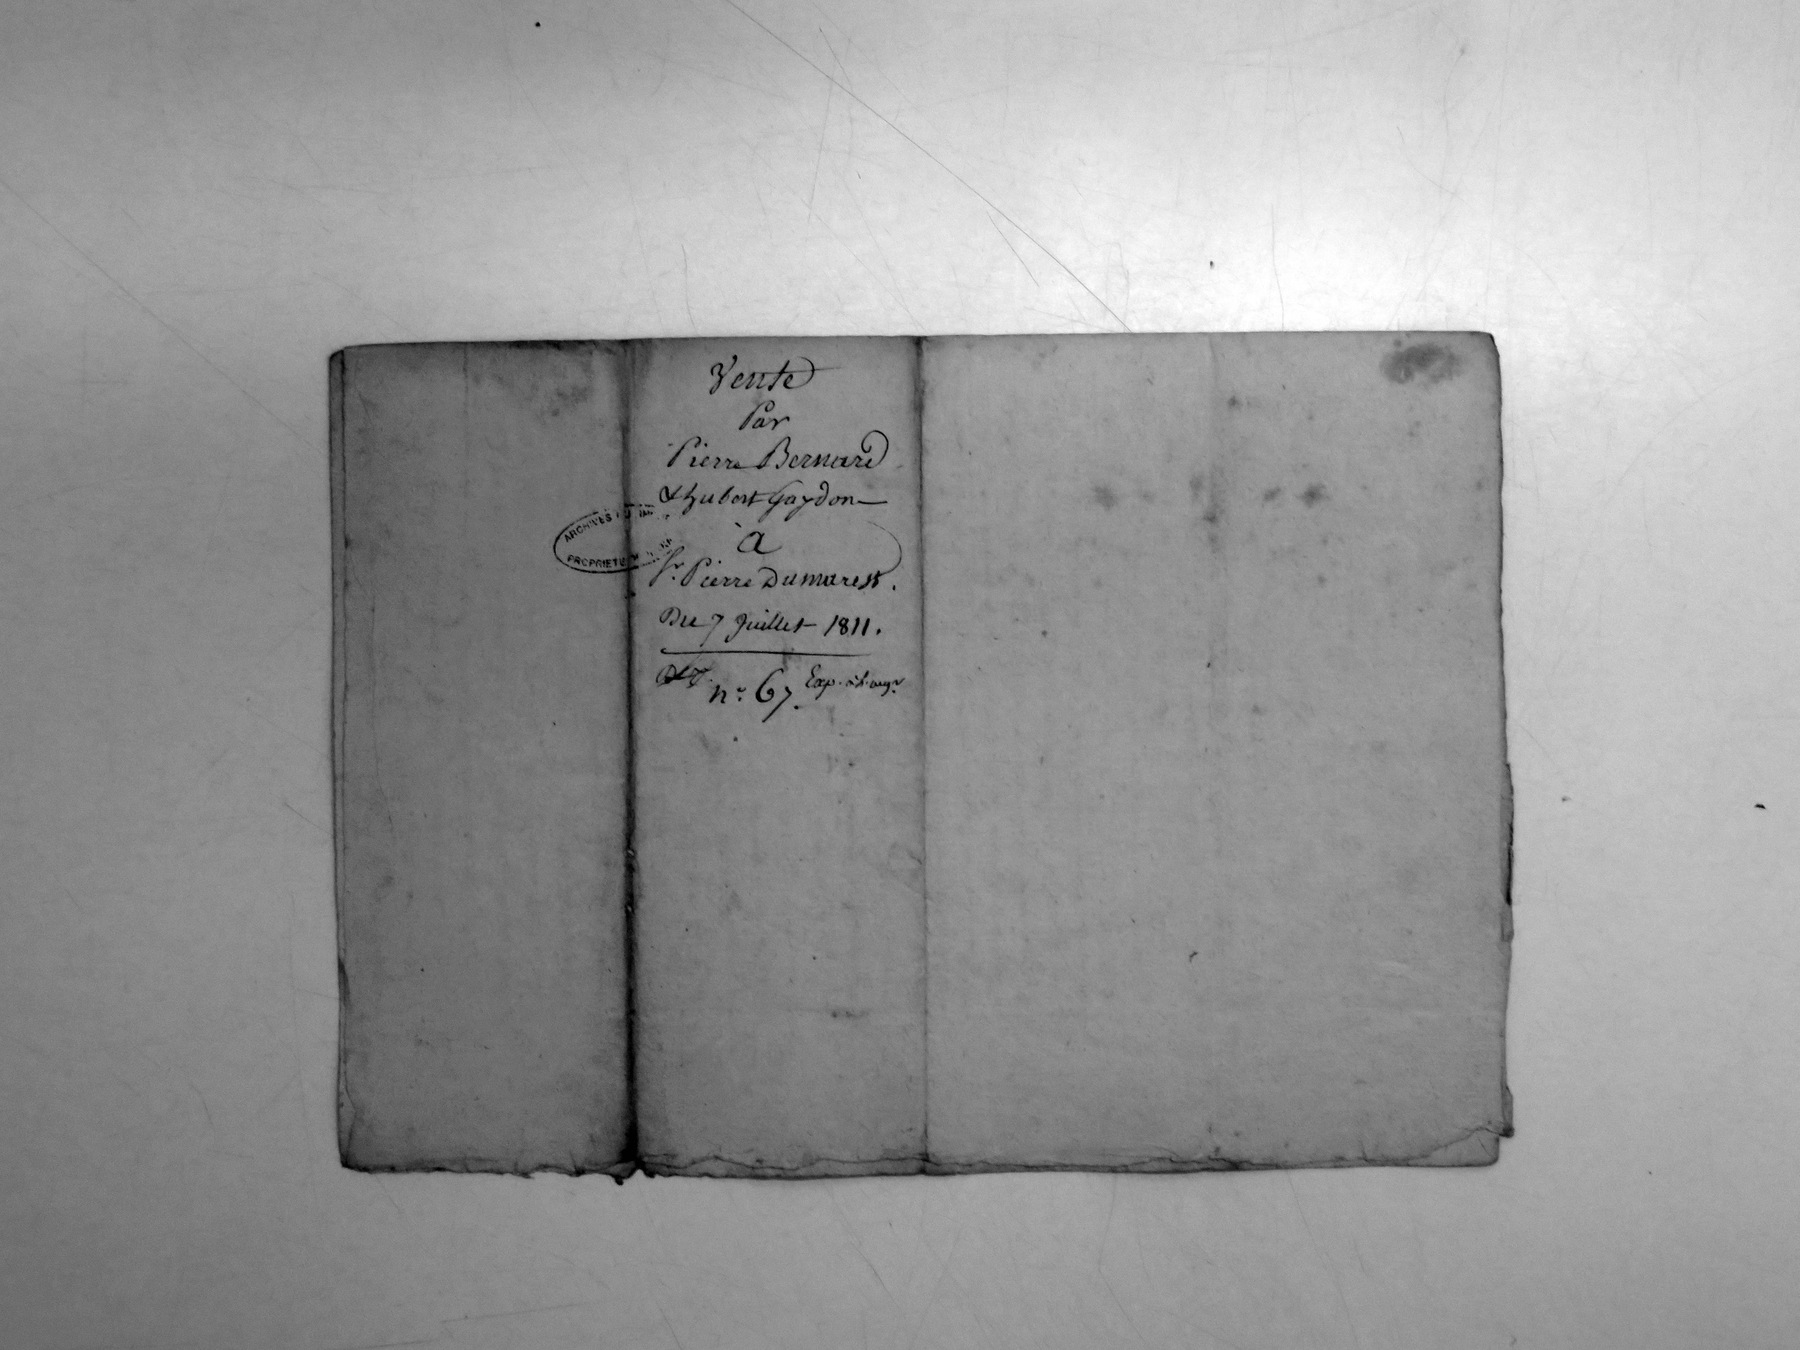 Vente
Par
Pierre Bernard
& hubert Gaydon
à
Sr. Pierre Dumarest.
Du 7 Juillet 1811.
n.° 67. Exp.
ARCHIVES
PROPRIETE